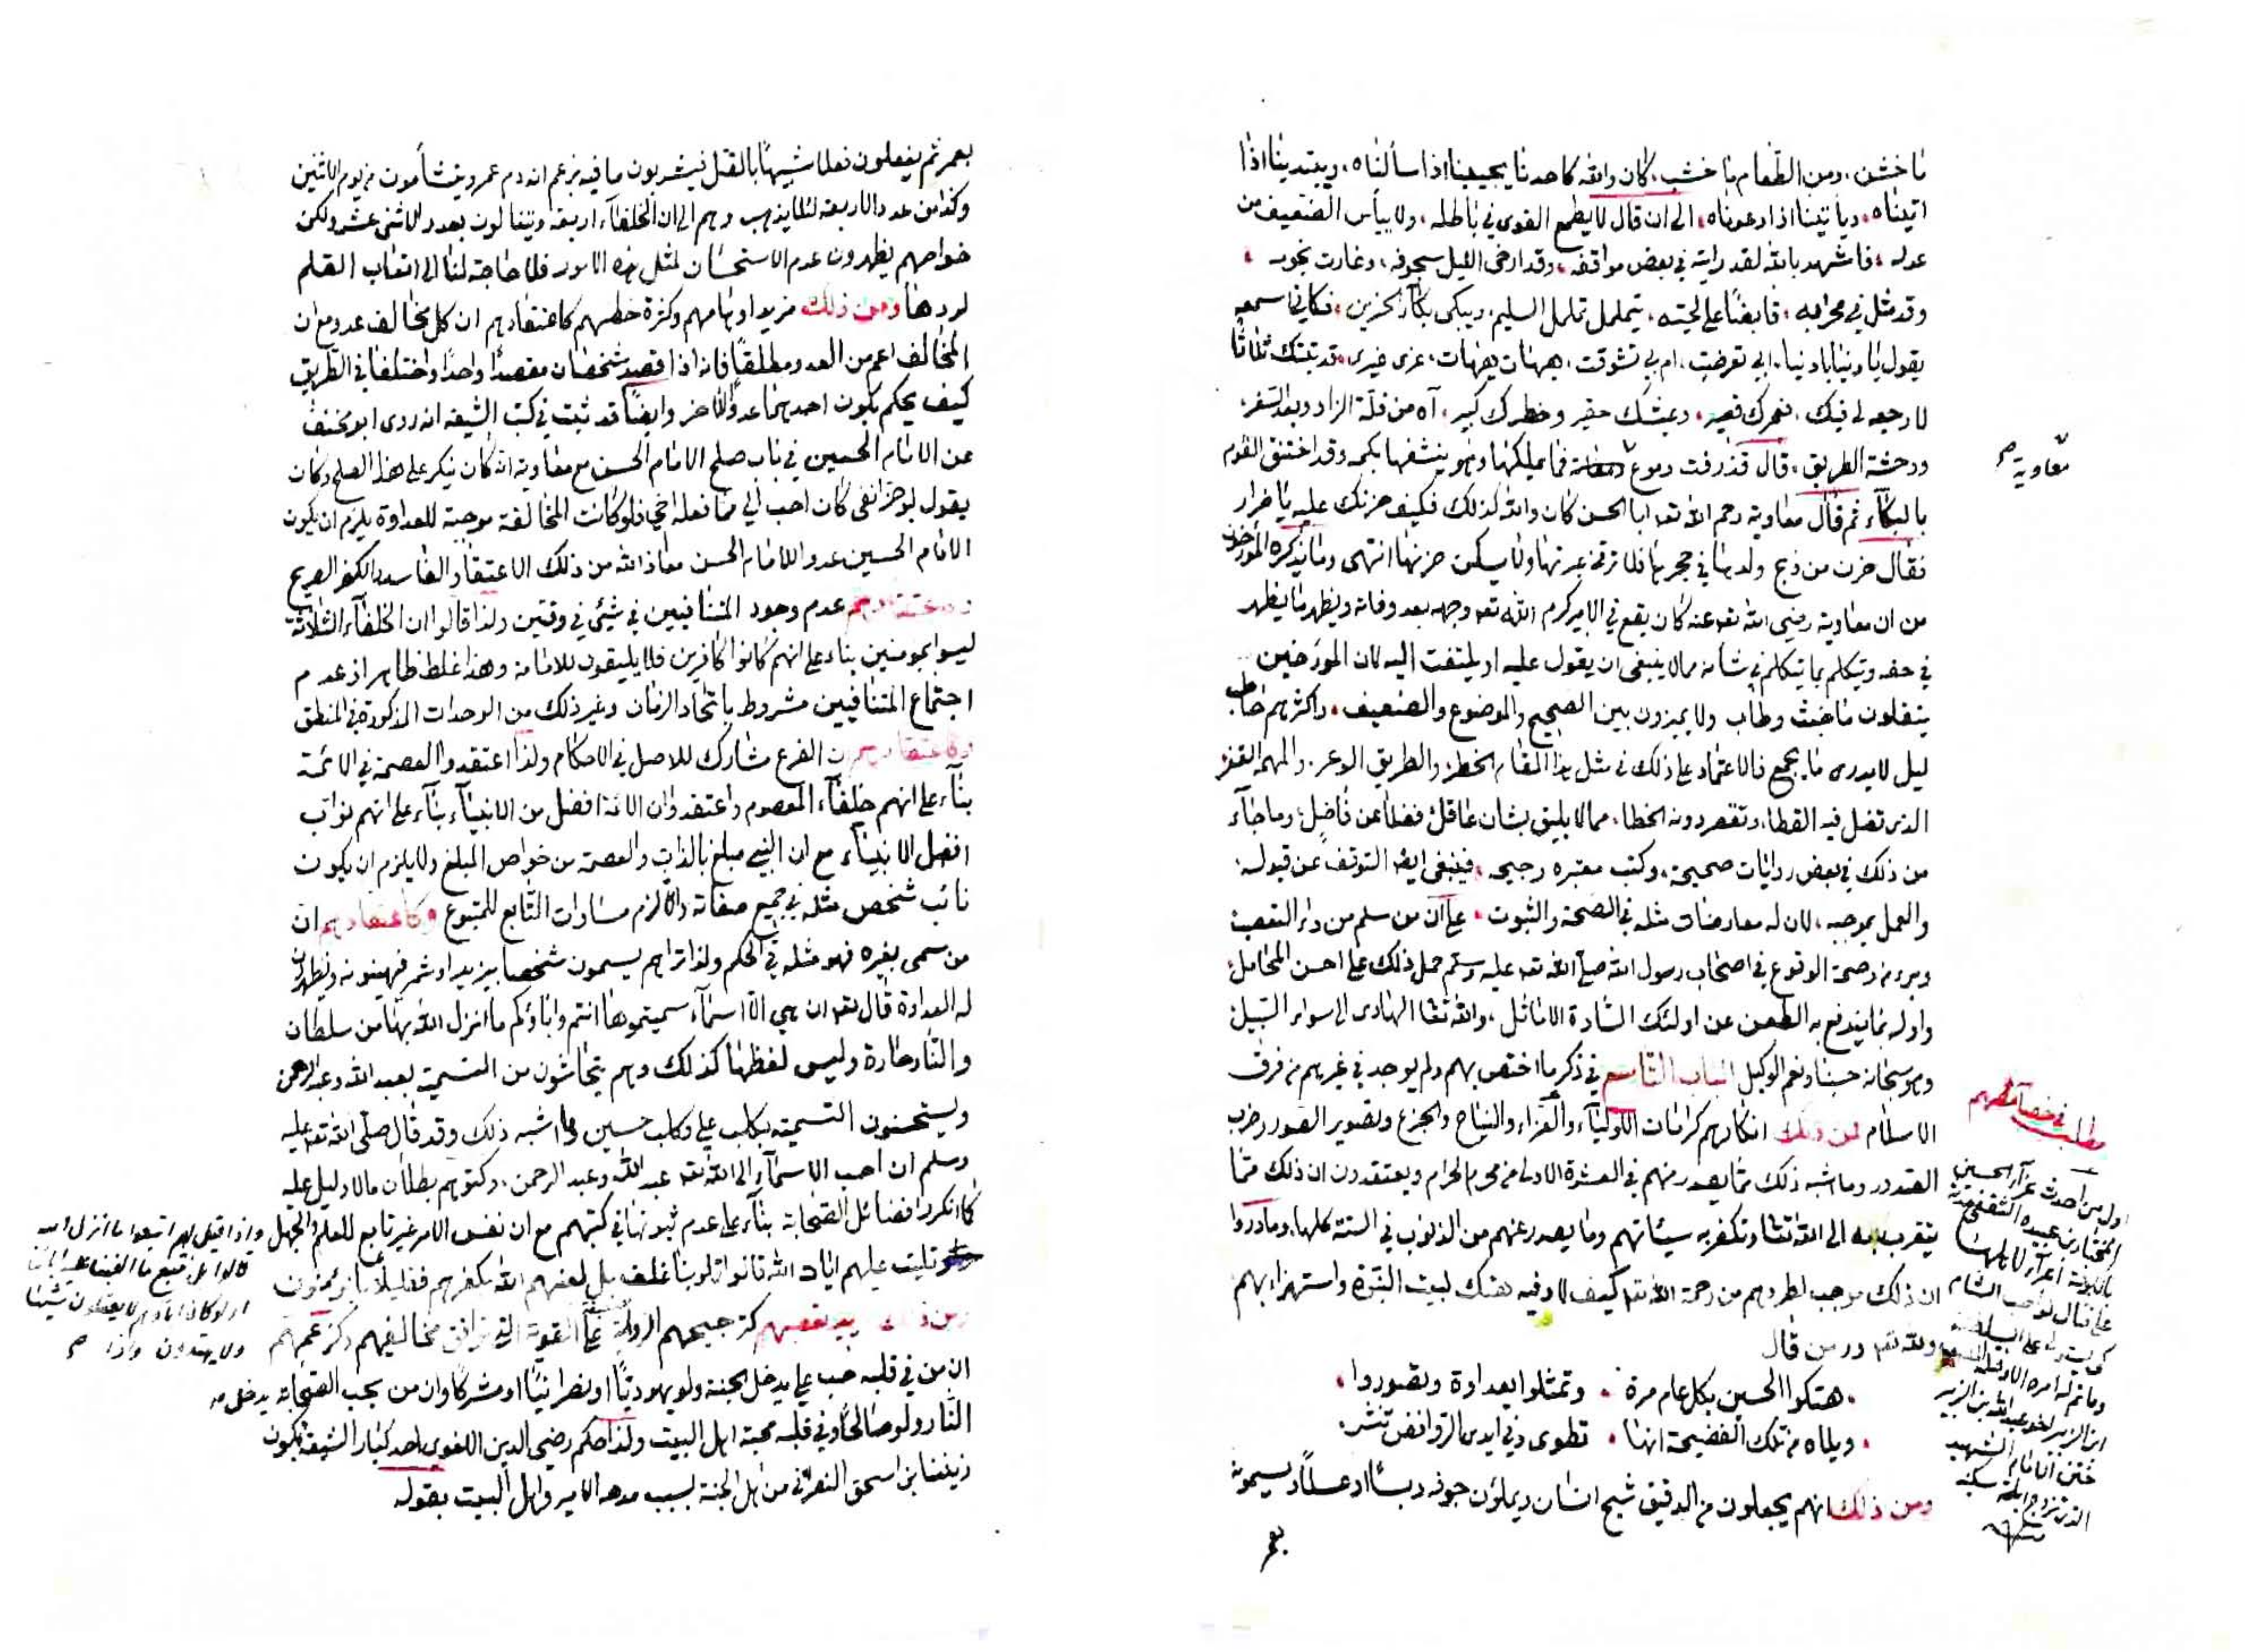 ما خشن، ومن الطعام ما خشب، كان والله كاحدنا يجيبنا اذا سألناه، ويبتدينا اذا
اتيناه، ويأتينا اذا دعوناه، الى ان قال لا يطمع القوى في باطله، ولا ييأس الضعيف من
عدله، فاشهد بالله لقد رايته في بعض مواقفه، وقد ارخى الليل سجوفه، وغارت نجومه،
وقد مثل في محرابه، قابضا على لحيته، يتململ تململ السليم، ويبكى بكآء الحزين، فكاني اسمعه
يقول يا دنيا يا دنيا، ابي تعرضت، ام بي تشوقت، هيهات هيهات، غرى غيرى، قد تبتك ثلاثا
لا رجعه لى فيك، فعمرك قصير، وعيشك حقير وخطرك كبير، آه من قلة الزاد وبعد السفر،
ووحشة الطريق، قال فذرفت دموع فما يملكها وهو ينشفها بكمه وقد اختنق القوم
معاوية صح
بالبكآء ثم قال معاوية رحم الله تعا ابا الحسن كان والله كذلك فكيف حزنك عليه يا ضرار
فقال حزن من ذبح ولدها في حجرها فلا ترقى عبرتها ولا يسكن حزنها انتهى وما يذكره المؤرخون
من ان معاوية رضى الله تعا عنه كان يقع في الامير كرم الله تعا وجهه بعد وفاته ويظهر ما يظهر
في حقه ويتكلم بما يتكلم في شأنه مما لا ينبغى ان يقول عليه او يلتفت اليه لان المؤرخين
ينقلون ما خبث وطاب ولا يميزون بين الصحيح والموضوع والضعيف، واكثرهم حاطب
ليل لا يدرى ما يجمع فالاعتماد على ذلك في مثل هذا المقام الخطر، والطريق الوعر، والمهمه القفر
الذى تضل فيه القطا، وتقصر دونه الخطا، مما لا يليق بشان عاقل، فضلا عن فاضل، وما جآء
من ذلك في بعض روايات صحيحة، وكتب معتبره رجيحه، فينبغى ايضا التوقف عن قبوله،
والعمل بموجبه، لان له معارضات مثله في الصحة والثبوت، على ان من سلم من داء التعصب
وبرء من وصمة الوقوع في اصحاب رسول الله صلى الله تعا عليه وسلم حمل ذلك على احسن المحامل،
واوله بما يندفع به الطعن عن اولئك السادة الاماثل، والله تعا الهادى الى سواء السبيل،
وهو سبحانه حسبنا ونعم الوكيل الباب التاسع في ذكر ما اختص بهم ولم يوجد في غيرهم من فرق
مطلب في خصائصهم
الاسلام فمن ذلك انكارهم كرامات الاوليآء والعزاء والنياح والجزع وتصوير الصور وضرب
الصدور وما اشبه ذلك مما يصدر منهم في العشرة الاولى من محرم الحرام ويعتقدون ان ذلك مما
يتقرب به الى الله تعا وتكفر به سيئاتهم وما يصدر عنهم من الذنوب في السنة كلها، وما دروا
ان ذلك موجب لطردهم من رحمة الله تعا كيف لا وفيه هتك لبيت النبوة واستهزاء بهم
ولله تعا در من قال
هتكوا الحسين بكل عام مرة، وتمثلوا بعداوة وتصوروا،
ويلاه من تلك الفضيحة انها، تطوى وفي ايدى الروافض تنشر،
ومن ذلك انهم يجعلون من الدقيق شبح انسان ويملؤن جوفه دبسا او عسلا ويسمونه
بعمر
اول من احدث عزآء الحسين
المختار بن عبيده الثقفى
بعمر ثم يفعلون فعلا شبيها بالقتل فيشربون ما فيه بزعم انه دم عمر ويتشأمون من يوم الاثنين
وكذا من عدد الاربعة لئلا يذهب وهم الى ان الخلفآء اربعة ويتفالون بعدد الاثنى عشر ولكن
خواصهم يظهرون عدم الاستحسان لمثل هذه الامور فلا حاجة لنا الى اتعاب القلم
لردها ومن ذلك مزيد اوهامهم وكثرة خطئهم كاعتقادهم ان كل مخالف عدو مع ان
المخالف اعم من العدو مطلقا فانه اذا قصد شخصان مقصدا واحدا واختلفا في الطريق
كيف يحكم بكون احدهما عدوا للاخر وايضا قد ثبت في كتب الشيعة انه روى ابو مخنف
عن الامام الحسين في باب صلح الامام الحسن مع معاوية انه كان ينكر على هذا الصلح وكان
يقول لو جز انفى كان احب الي مما فعله اخى فلو كانت المخالفة موجبة للعداوة يلزم ان يكون
الامام الحسين عدوا للامام الحسن معاذ الله من ذلك الاعتقاد الفاسد والكفر الصريح
عدم وجود المتنافيين في شئ في وقتين ولذا قالوا ان الخلفآء الثلاثة
ليسوا بمومنين بناء على انهم كانوا كافرين فلا يليقون للامامة وهذا غلط ظاهر اذ عدم
اجتماع المتنافيين مشروط باتحاد الزمان وغير ذلك من الوحدات المذكورة في المنطق
وكاعتقادهم ان الفرع مشارك للاصل في الاحكام ولذا اعتقدوا العصمة في الائمة
بنآء على انهم خلفآء المعصوم واعتقدوا ان الائمة افضل من الانبيآء بنآء على انهم نواب
افضل الانبيآء مع ان النبي مبلغ بالذات والعصمة من خواص المبلغ ولا يلزم ان يكون
نائب شخص مثله في جميع صفاته والا لزم مساوات التابع للمتبوع وكاعتقادهم ان
من سمى بغيره فهو مثله في الحكم ولذا تراهم يسمون شخصا بيزيد او شمر فيهينونه ويظهرون
له العداوة قال تعا ان هي الا اسمآء سميتموها انتم واباؤكم ما انزل الله بها من سلطان
والنار حارة وليس لفظها كذلك وهم يتحاشون من التسمية بعبد الله وعبد الرحمن
ويستحسنون التسمية بكلب علي وكلب حسين وما اشبه ذلك وقد قال صلى الله تعا عليه
وسلم ان احب الاسمآء الى الله تعا عبد الله وعبد الرحمن، وكتوهم بطلان ما لا دليل عليه
كما انكروا فضائل الصحابة بنآء على عدم ثبوتها في كتبهم مع ان نفس الامر غير تابع للعلم والجهل
واذا قيل لهم اتبعوا ما انزل الله
قالوا بل نتبع ما الفينا عليه اباءنا
او لو كان اباؤهم لا يعقلون شيئا
ولا يهتدون واذا صح
تليت عليهم ايات الله قالوا قلوبنا غلف بل لعنهم الله بكفرهم فقليلا ما يومنون
ومن ذلك مزيد تعصبهم كترجيحهم الرواية على القوية التي توافق مخالفيهم وكزعمهم
ان من في قلبه حب علي يدخل الجنة ولو يهوديا او نصرانيا او مشركا وان من يحب الصحابة يدخل
النار ولو صالحا وفي قلبه محبة اهل البيت ولذا حكم رضى الدين اللغوى احد كبار الشيعة بكون
زينفا بن اسحق النصرانى من اهل الجنة بسبب مدحه الامير واهل البيت بقوله